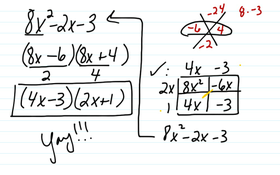 8x²-2x-3
(8x-6)(8x+4)
2 4
(4x-3)(2x+1)
Yay!!!
-24
-6 4
-2
8·-3
✓: 4x -3
2x 8x² -6x
1 4x -3
8x²-2x-3